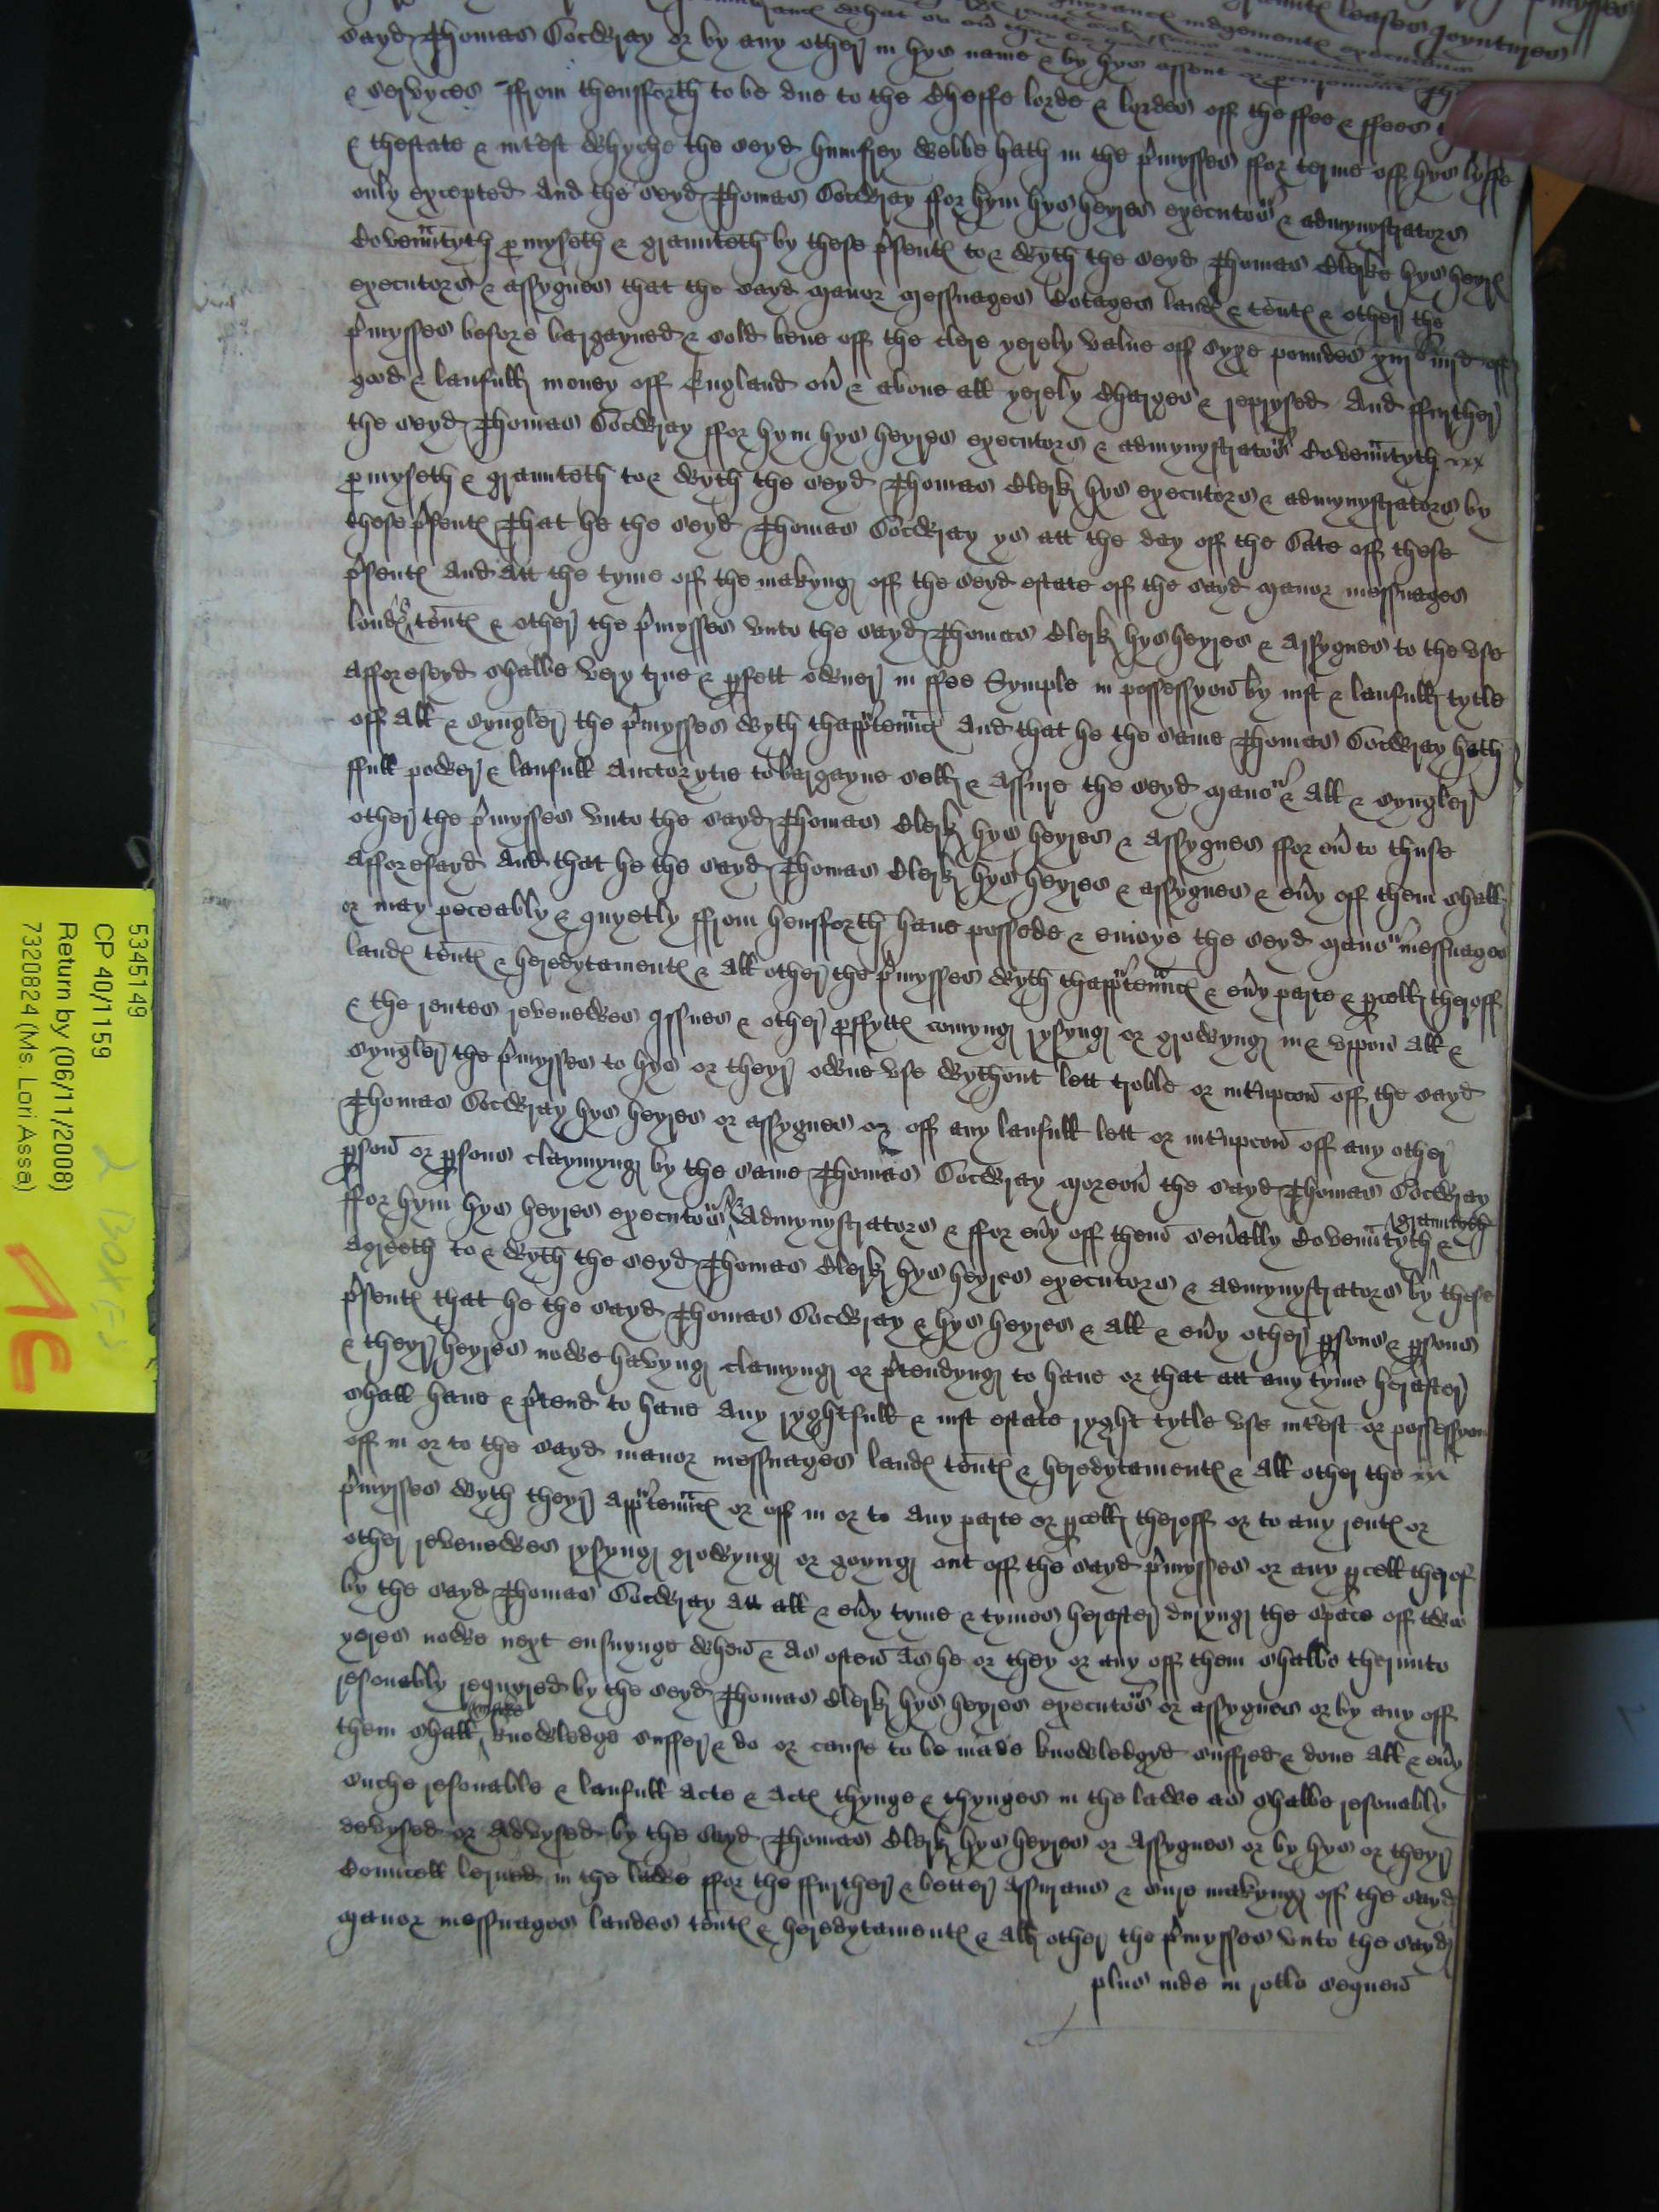 sayd Thomas Cocwray or by any other in hys name & by hys assent or
& servyces ffrom thensfforth to be due to the cheffe lorde & lordes off the ffee & ffees
& thestate & int'est whyche the seyd humfrey Webbe hath in the p'mysses ffor terme off hys lyffe
only excepted And the seyd Thomas Cocwray ffor hym hys heyres executours & admynystrators
Covenauntyth promyseth & graunteth by these p'sentes to & wyth the seyd Thomas Clerke hys heyres
executors & assygnes that the sayd manor messuages Cotages landes & tentes & other the
p'mysses before bargayned & sold bene off the clere yerely value off syxe poundes xiijs iiijd off
good & laufull money off England ov' & above all yerely charges & reprysed And ffurther
the seyd Thomas Cocwray ffor hym hys heyres executors & admynystratours Covenauntyth
promyseth & graunteth to & wyth the seyd Thomas Clerk hys executors & admynystrators by
these p'sentes That he the seyd Thomas Cocwray ys att the day off the Date off these
p'sentes And Att the tyme off the makyng off the seyd estate off the sayd manor messuages
londes & tentes & other the p'mysses unto the sayd Thomas Clerk hys heyres & Assygnes to the use
Afforeseyd shalbe very true & perfett owner in ffee Symple in possessyon by iust & laufull tytle
off All & syngler the p'mysses wyth thappurtenaunces And that he the same Thomas Cocwray hath
ffull power & laufull Auctorytie to bargayne sell & Assure the seyd manour & All & syngler
other the p'mysses unto the sayd Thomas Clerk hys heyres & Assygnes ffor ev' to thuse
Afforesayd And that he the sayd Thomas Clerk hys heyres & assygnes & ev'y off them shall
or may peceably & quyetly ffrom hensfforth have possede & enioye the seyd manour messuages
landes tentes & heredytamentes & All other the p'mysses wyth thappurtenaunces & ev'y parte & parcell theroff
& the rentes revenewes yssues & other proffyttes comyng rysyng or growyng in & uppon All &
syngler the p'mysses to hys or theyr owne use wythout lett troble or int'rupcon off the sayd
Thomas Cocwray hys heyres or assygnes or off any laufull lett or int'rupcon off any other
person or persons claymyng by the same Thomas Cocwray moreov' the sayd Thomas Cocwray
ffor hym hys heyres executours & Admynystrators & ffor ev'y off them sev'ally Covenauntyth graunteth &
Agreeth to & wyth the seyd Thomas Clerk hys heyres executors & admynystrators by these
p'sentes that he the sayd Thomas Cocwray & hys heyres & All & ev'y other persons & persons
& theyr heyres nowe havyng clamyng or p'tendyng to have or that att any tyme herafter
shall have & p'tend to have Any ryghtfull & iust estate ryght tytle use int'est or possessyon
off in or to the sayd manor messuages landes tentes & heredytamentes & All other the
p'mysses wyth theyr Appurtenaunces or off in or to Any parte or parcell theroff or to any rentes or
other revenewes rysyng growyng or goyng out off the sayd p'mysses or any parcell therof
by the sayd Thomas Cocwray Att all & ev'y tyme & tymes herafter duryng the space off two
yeres nowe next ensuynge when & As often As he or they or any off them shalbe therunto
resonably requyred by the seyd Thomas Clerk hys heyres executours or assygnes or by any off
them shall make knowledge suffer & do or cause to be made knowledgyd suffred & done All & ev'y
suche resonable & laufull Acte & Actes thynge & thynges in the lawe as shalbe resonably
devysed or Advysed by the sayd Thomas Clerk hys heyres or Assygnes or by hys or theyr
Councell lerned in the lawe ffor the ffurther & better Assurans & sure makyng off the sayd
manor messuages landes tentes & heredytamentes & All other the p'mysses unto the sayd
plus inde in rotlo sequen
5345149
CP 40/1159
Return by (06/11/2008)
7320824 (Ms. Lori Asse)
2 Box(es)